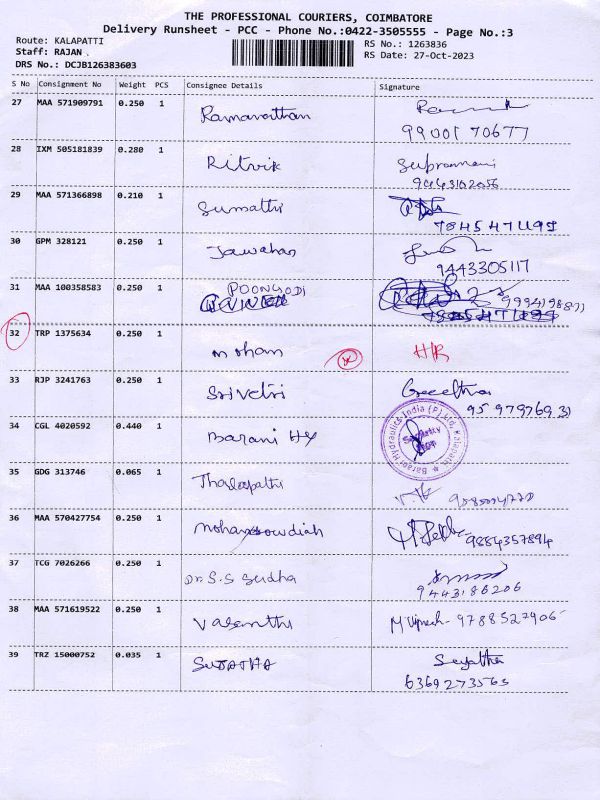 THE PROFESSIONAL COURIERS, COIMBATORE
Delivery Runsheet - PCC - Phone No.:0422-3505555 - Page No.:3
Route: KALAPATTI
Staff: RAJAN
DRS No.: DCJB126383603
RS No.: 1263836
RS Date: 27-Oct-2023
S No Consignment No Weight PCS Consignee Details Signature
27 MAA 571909791 0.250 1
99001 70677
28 IXM 505181839 0.280 1 Ritvik
29 MAA 571366898 0.210 1 Sumathi
30 GPM 328121 0.250 1 Jawahar
9443305117
31 MAA 100358583 0.250 1 POONGODI
32 TRP 1375634 0.250 1 mohan HR
33 RJP 3241763 0.250 1 Srivetri
34 CGL 4020592 0.440 1 Barani Hy
Barani Hydraulics India (P) Ltd, Kalapatti
Security
35 GDG 313746 0.065 1
36 MAA 570427754 0.250 1
9884357894
37 TCG 7026266 0.250 1 Dr. S.S Sudha
9443186206
38 MAA 571619522 0.250 1 Vasanthi 9788527906
39 TRZ 15000752 0.035 1 SUJATHA Sujatha
6369273565